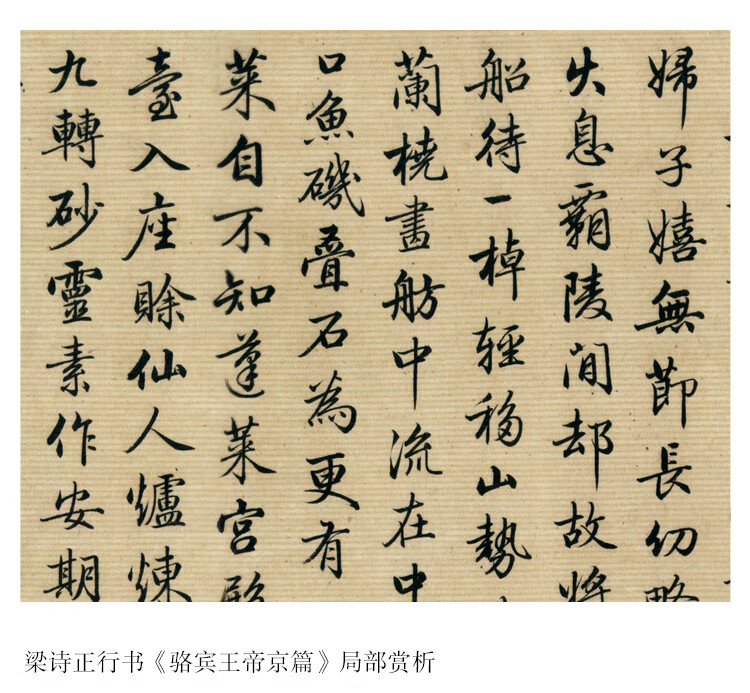 婦子嬉無節長幼
失息霸陵間却故將
船待一棹輕移山勢
蘭橈畫舫中流在中
口魚磯疊石為更有
菜自不知蓬萊宮殿
臺入座賒仙人爐煉
九轉砂靈素作安期
梁诗正行书《骆宾王帝京篇》局部赏析